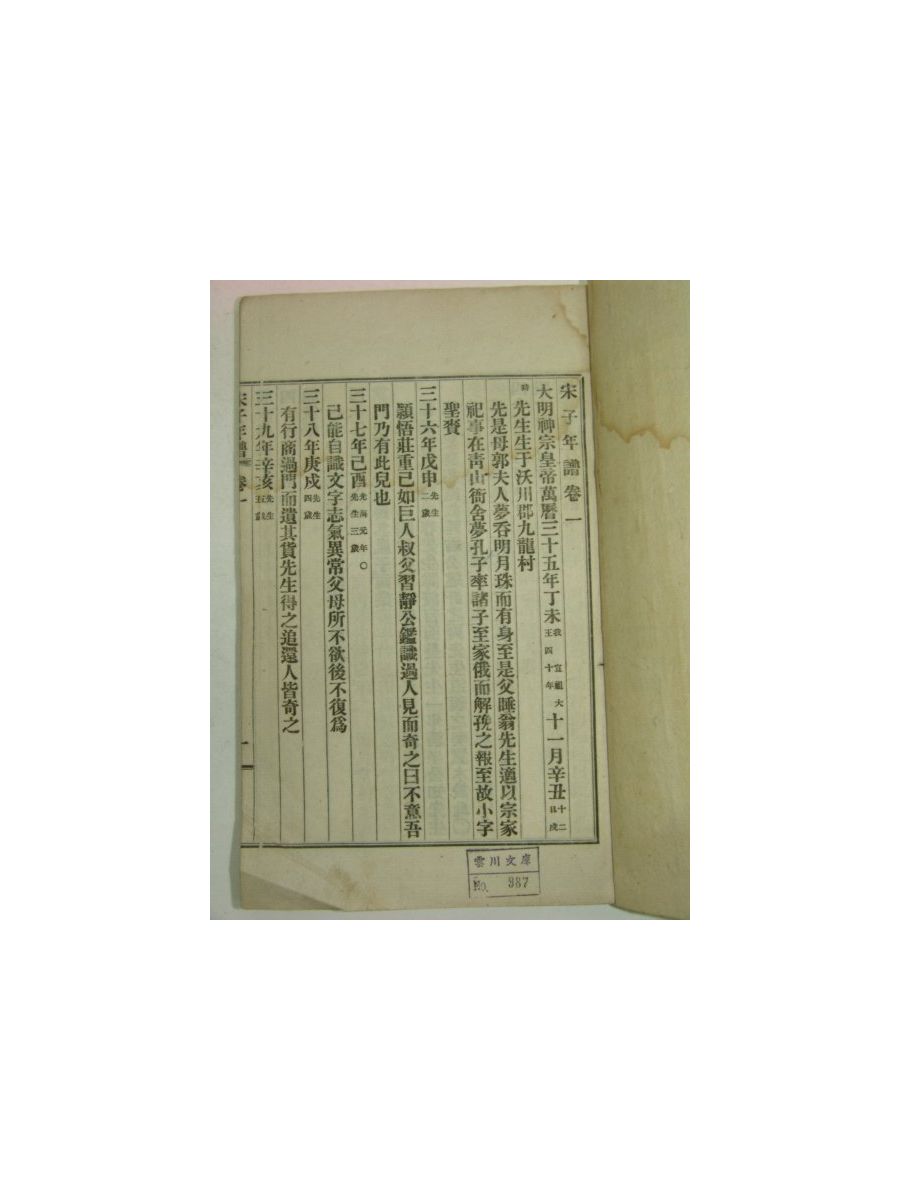 宋子年譜卷一
大明神宗皇帝萬曆三十五年丁未我宣祖大王四十年十一月辛丑十二日戌
時先生生于沃川郡九龍村
先是母郭夫人夢呑明月珠而有身至是父睡翁先生適以宗家
祀事在靑山衙舍夢孔子率諸子至家俄而解㝃之報至故小字
聖賚
三十六年戊申先生二歲
穎悟莊重已如巨人叔父習靜公鑑識過人見而奇之曰不意吾
門乃有此兒也
三十七年己酉光海元年先生三歲○
已能自識文字志氣異常父母所不欲後不復爲
三十八年庚戌先生四歲
有行商過門而遺其貨先生得之追還人皆奇之
三十九年辛亥先生五歲
宋子年譜 卷一 一
雲川文庫
No. 387